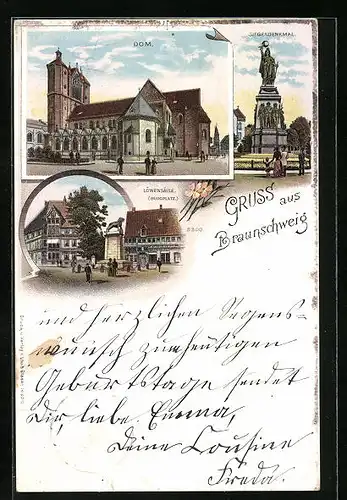 DOM.
SIEGESDENKMAL.
LÖWENSÄULE.
(BURGPLATZ.)
GRUSS aus
Braunschweig
und herzlichen Segens-
wunsch zum heutigen
Geburtstage sendet
Dir, liebe Emma,
Deine Cousine
Freda.